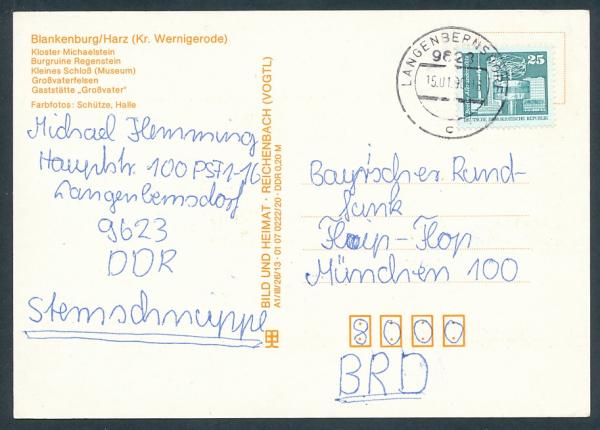 Blankenburg/Harz (Kr. Wernigerode)
Kloster Michaelstein
Burgruine Regenstein
Kleines Schloß (Museum)
Großvaterfelsen
Gaststätte „Großvater"
Farbfotos: Schütze, Halle
Michael Flemming
Hauptstr. 100 PSF 1-16
Langenbernsdorf
9623
DDR
Sternschnuppe
BILD UND HEIMAT · REICHENBACH (VOGTL)
A1/III/26/13 · 01 07 0222/20 · DDR 0,20 M
LANGENBERNSDORF
9623
15.01.90
c
25
DEUTSCHE DEMOKRATISCHE REPUBLIK
Bayrischer Rund-
funk
Flip-Flop
München 100
8000
BRD